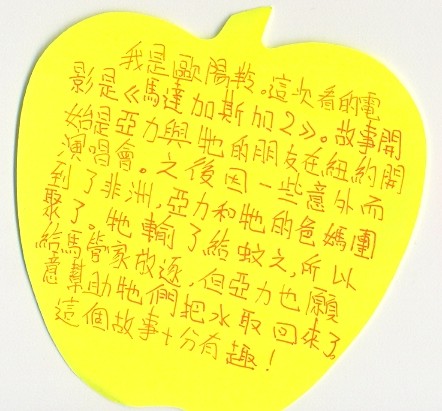 我是歐陽。這次看的電
影是《馬達加斯加2》。故事開
始是亞力與牠的朋友在紐約開
演唱會。之後因一些意外而
到了非洲,亞力和牠的爸媽團
聚了。牠輸了給蚊之,所以
給馬管家放逐,但亞力也願
意幫助牠們把水取回來了。
這個故事十分有趣!